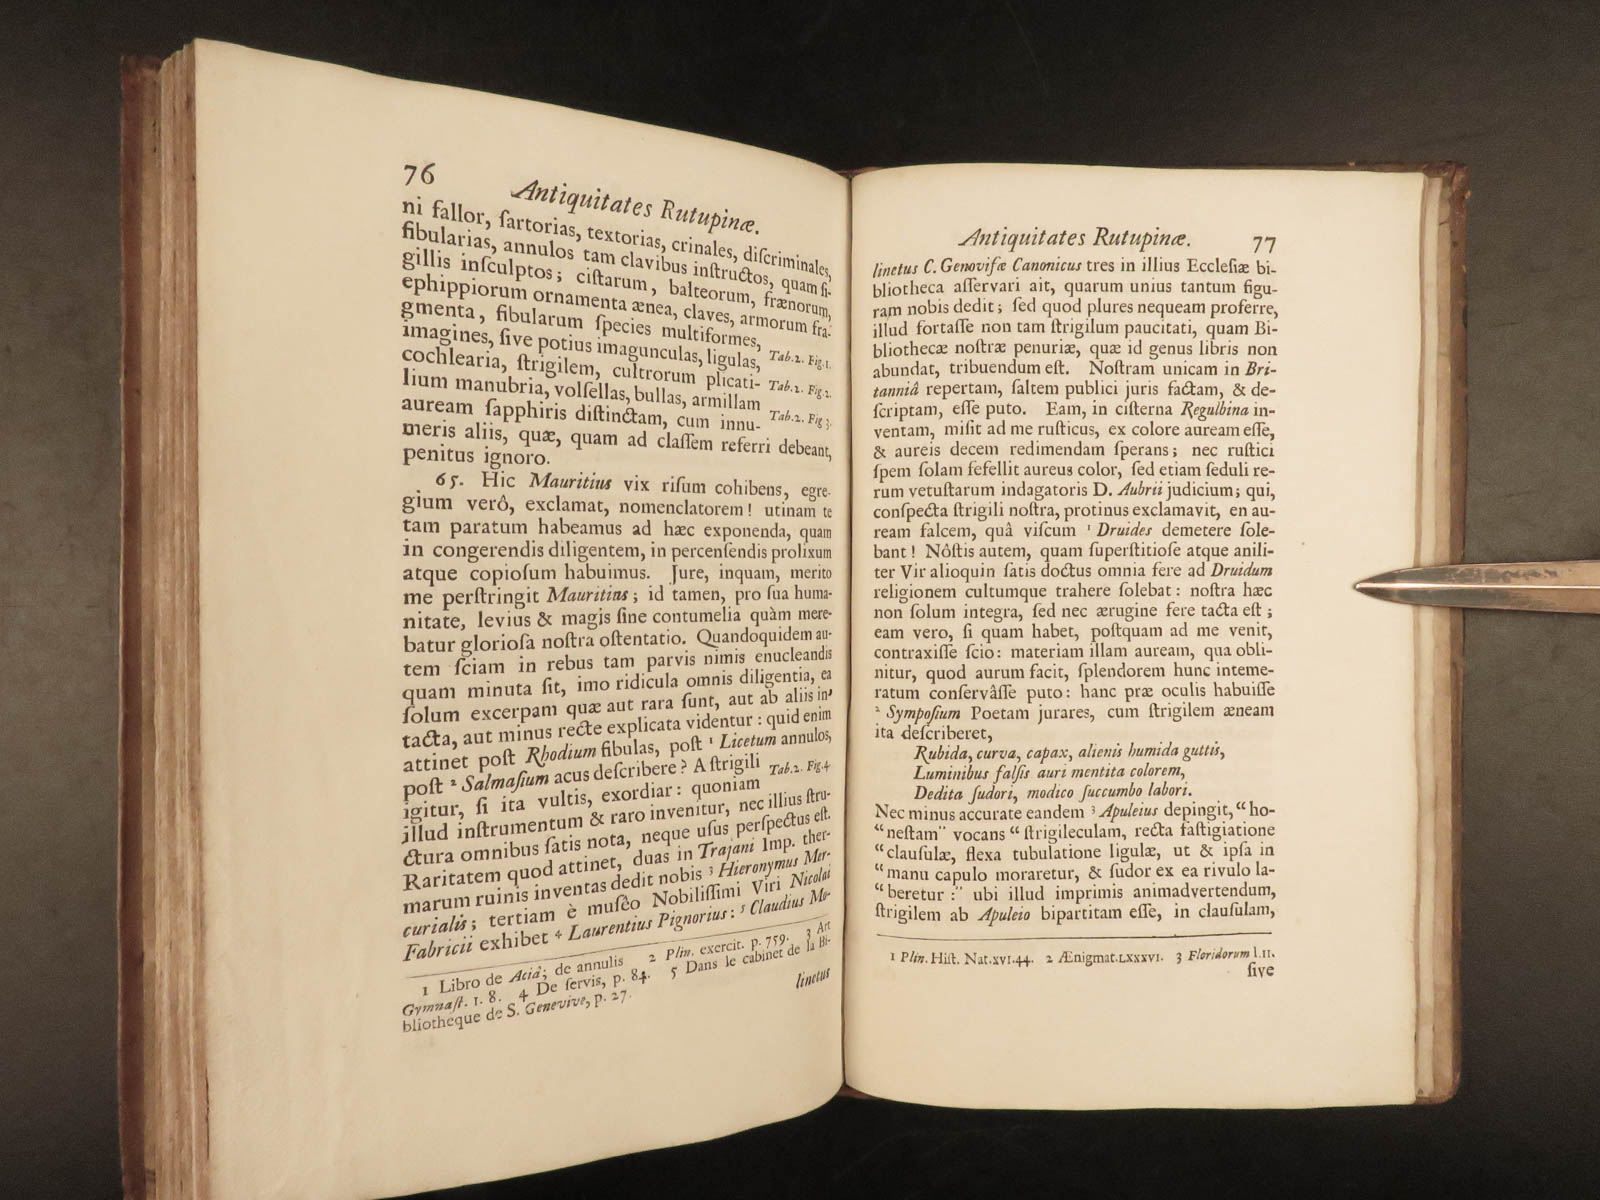 76
Antiquitates Rutupinæ.
ni fallor, ſartorias, textorias, crinales, diſcriminales,
fibularias, annulos tam clavibus inſtructos, quam ſi-
gillis inſculptos; ciſtarum, balteorum, frænorum,
ephippiorum ornamenta ænea, claves, armorum fra-
gmenta, fibularum ſpecies multiformes,
imagines, ſive potius imagunculas, ligulas, Tab.2. Fig.1.
cochlearia, ſtrigilem, cultrorum plicati- Tab.2. Fig.2.
lium manubria, volſellas, bullas, armillam
auream ſapphiris diſtinctam, cum innu- Tab.2. Fig 3.
meris aliis, quæ, quam ad claſſem referri debeant,
penitus ignoro.
65. Hic Mauritius vix riſum cohibens, egre-
gium verô, exclamat, nomenclatorem! utinam te
tam paratum habeamus ad hæc exponenda, quam
in congerendis diligentem, in percenſendis prolixum
atque copioſum habuimus. Jure, inquam, merito
me perſtringit Mauritius; id tamen, pro ſua huma-
nitate, levius & magis ſine contumelia quàm mere-
batur glorioſa noſtra oſtentatio. Quandoquidem au-
tem ſciam in rebus tam parvis nimis enucleandis
quam minuta ſit, imo ridicula omnis diligentia, ea
ſolum excerpam quæ aut rara ſunt, aut ab aliis in-
tacta, aut minus recte explicata videntur: quid enim
attinet poſt Rhodium fibulas, poſt 1 Licetum annulos,
poſt 2 Salmaſium acus deſcribere? A ſtrigili Tab.2. Fig.4
igitur, ſi ita vultis, exordiar: quoniam
illud inſtrumentum & raro invenitur, nec illius ſtru-
ctura omnibus ſatis nota, neque uſus perſpectus eſt.
Raritatem quod attinet, duas in Trajani Imp. ther-
marum ruinis inventas dedit nobis 3 Hieronymus Mer-
curialis; tertiam è muſêo Nobiliſſimi Viri Nicolai
Fabricii exhibet 4 Laurentius Pignorius: 5 Claudius Mo-
1 Libro de Aciâ; de annulis 2 Plin. exercit. p. 759. 3 Art
Gymnaſt. 1. 8. 4 De ſervis, p. 84. 5 Dans le cabinet de la Bi-
bliotheque de S. Genevive, p. 27.
linetus
Antiquitates Rutupinæ. 77
linetus C. Genovifæ Canonicus tres in illius Eccleſiæ bi-
bliotheca aſſervari ait, quarum unius tantum figu-
ram nobis dedit; ſed quod plures nequeam proferre,
illud fortaſſe non tam ſtrigilum paucitati, quam Bi-
bliothecæ noſtræ penuriæ, quæ id genus libris non
abundat, tribuendum eſt. Noſtram unicam in Bri-
tanniâ repertam, ſaltem publici juris factam, & de-
ſcriptam, eſſe puto. Eam, in ciſterna Regulbina in-
ventam, miſit ad me ruſticus, ex colore auream eſſe,
& aureis decem redimendam ſperans; nec ruſtici
ſpem ſolam fefellit aureus color, ſed etiam ſeduli re-
rum vetuſtarum indagatoris D. Aubrii judicium; qui,
conſpecta ſtrigili noſtra, protinus exclamavit, en au-
ream falcem, quâ viſcum 1 Druides demetere ſole-
bant! Nôſtis autem, quam ſuperſtitioſe atque anili-
ter Vir alioquin ſatis doctus omnia fere ad Druidum
religionem cultumque trahere ſolebat: noſtra hæc
non ſolum integra, ſed nec ærugine fere tacta eſt;
eam vero, ſi quam habet, poſtquam ad me venit,
contraxiſſe ſcio: materiam illam auream, qua obli-
nitur, quod aurum facit, ſplendorem hunc inteme-
ratum conſervâſſe puto: hanc præ oculis habuiſſe
2 Sympoſium Poetam jurares, cum ſtrigilem æneam
ita deſcriberet,
Rubida, curva, capax, alienis humida guttis,
Luminibus falſis auri mentita colorem,
Dedita ſudori, modico ſuccumbo labori.
Nec minus accurate eandem 3 Apuleius depingit, “ho-
“neſtam” vocans “ſtrigileculam, recta faſtigiatione
“clauſulæ, flexa tubulatione ligulæ, ut & ipſa in
“manu capulo moraretur, & ſudor ex ea rivulo la-
“beretur:” ubi illud imprimis animadvertendum,
ſtrigilem ab Apuleio bipartitam eſſe, in clauſulam,
1 Plin. Hiſt. Nat.XVI.44. 2 Ænigmat.LXXXVI. 3 Floridorum l.II.
ſive